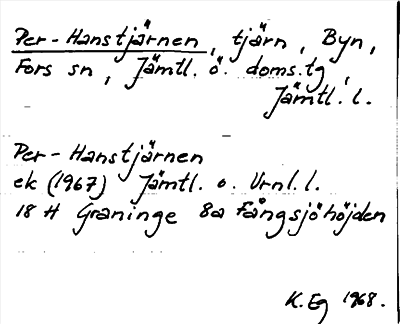 Per-Hanstjärnen, tjärn, Byn,
Fors sn, Jämtl. ö. doms.tg,
Jämtl. l.
Per-Hanstjärnen
ek (1967) Jämtl. o. Vrnl. l.
18 H Graninge 8a Fångsjöhöjden
K. Eg 1968.